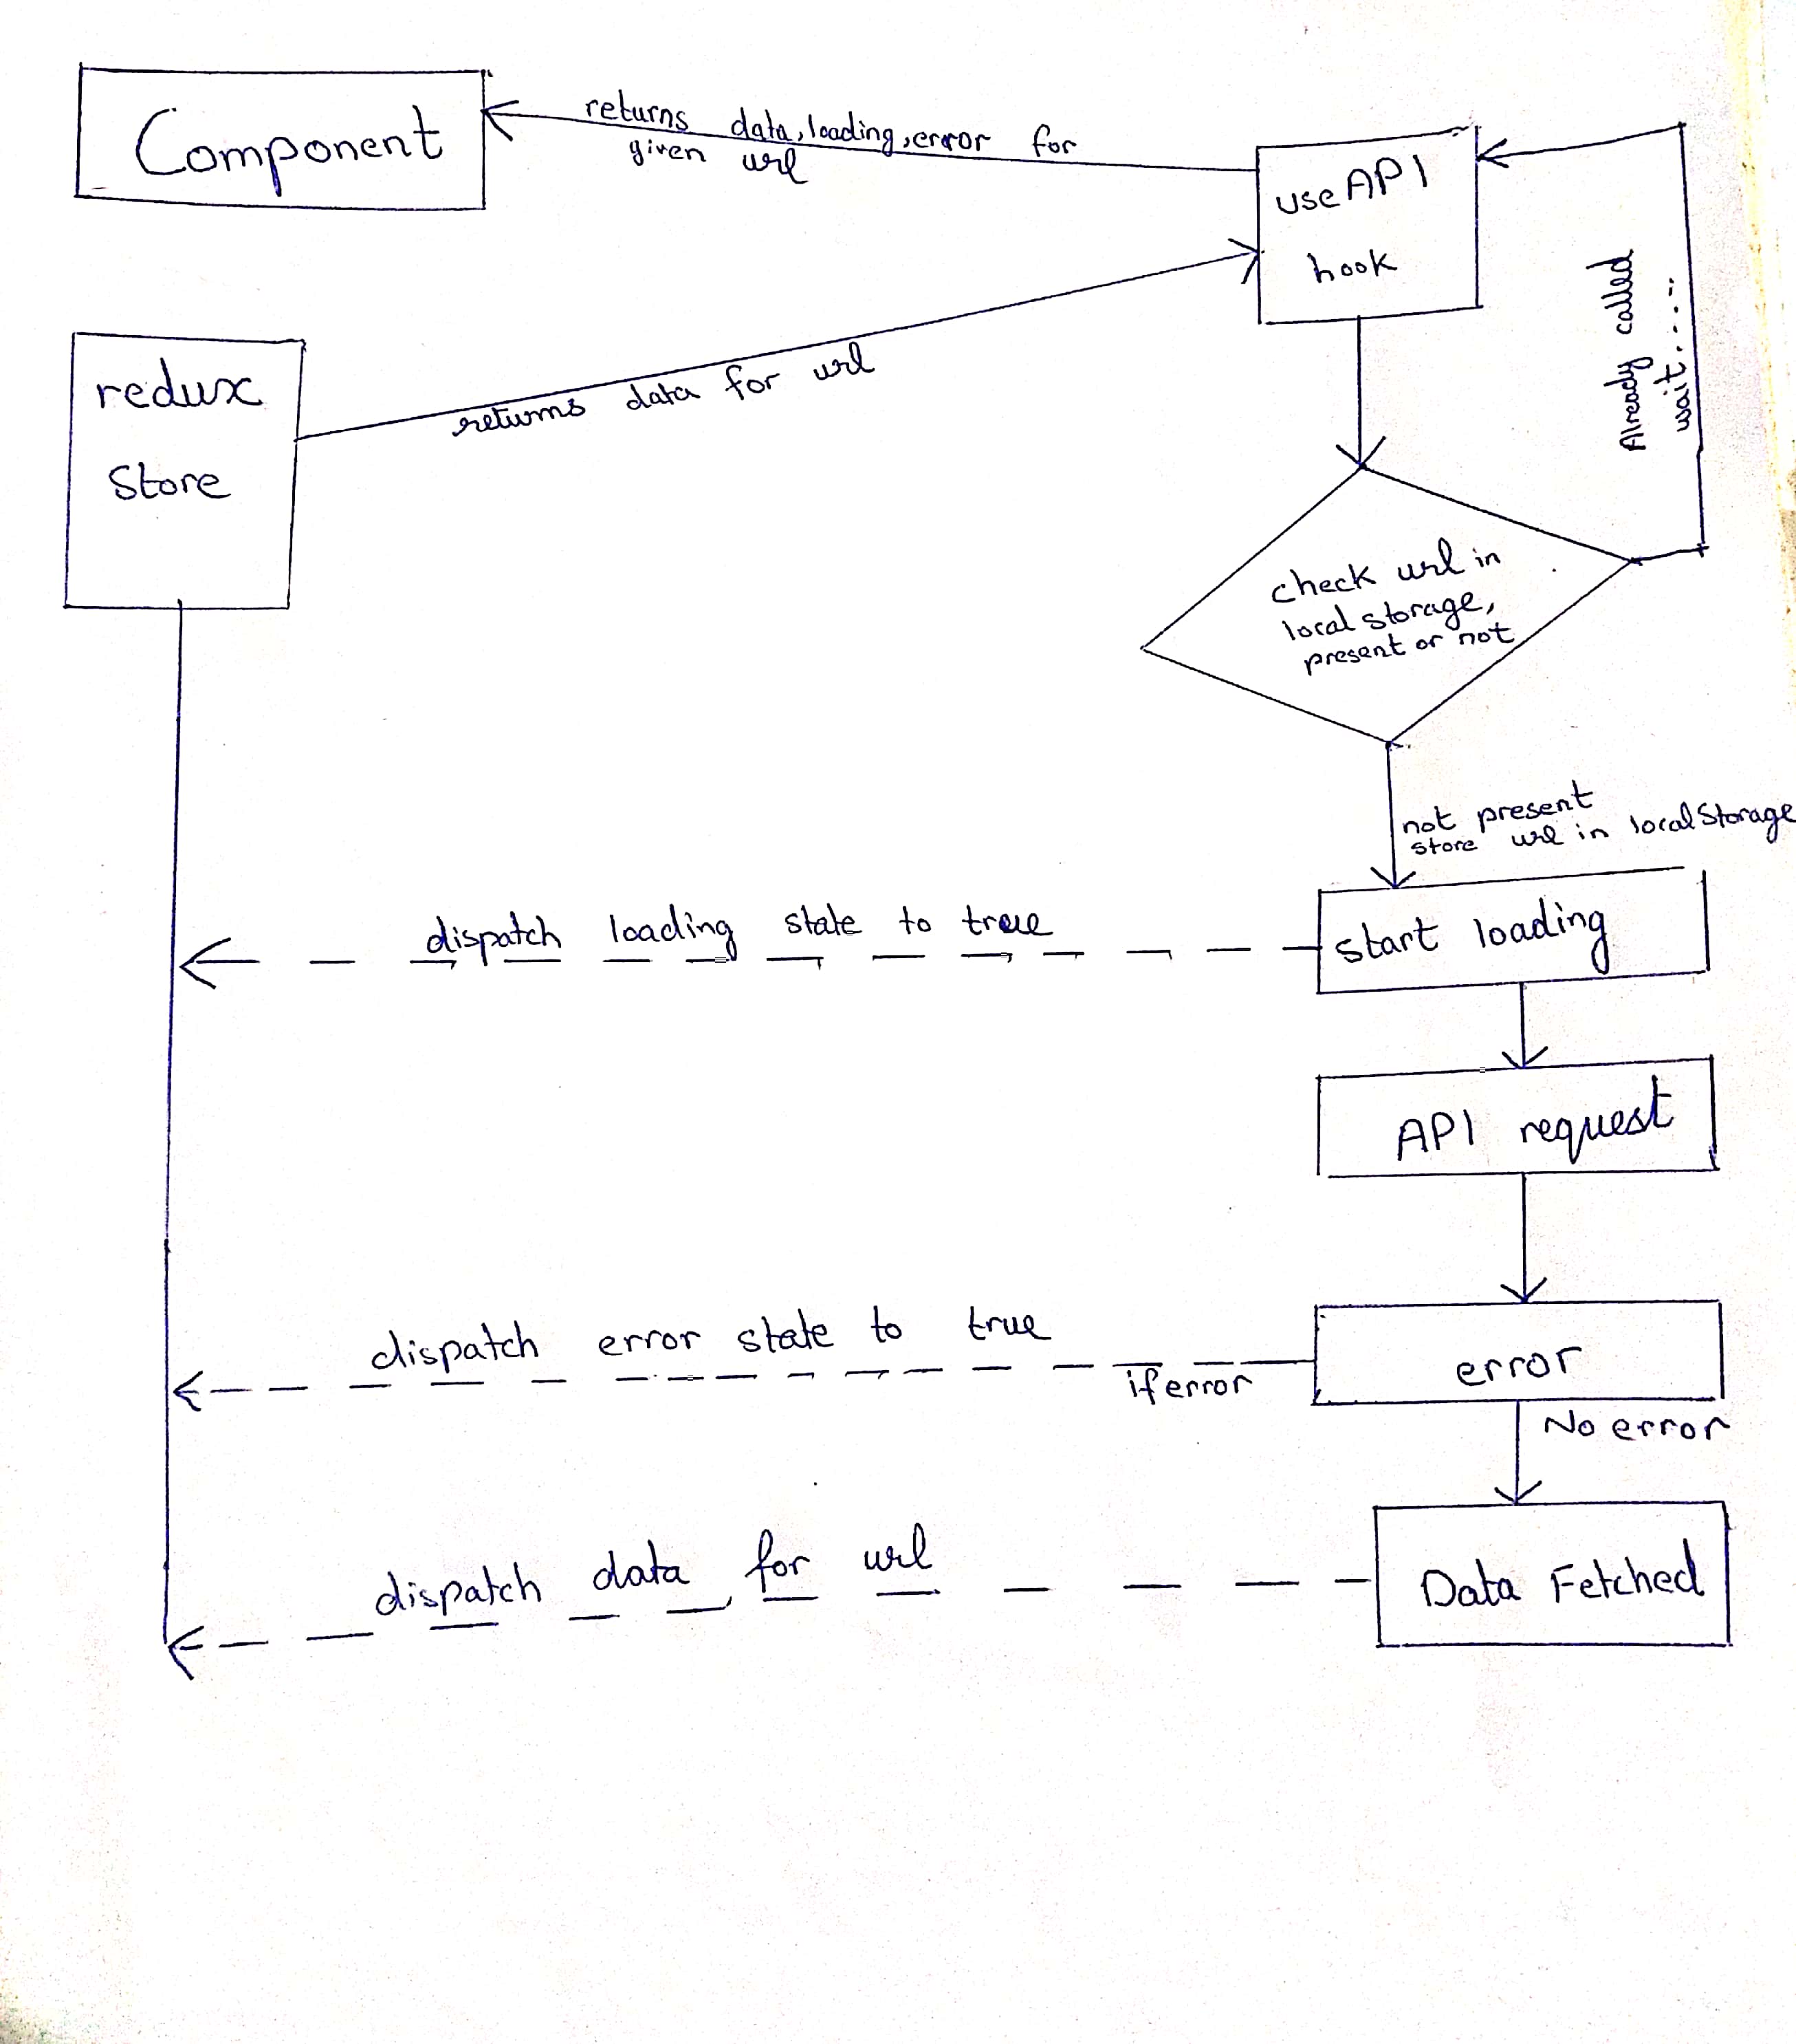 Component
returns data, loading, error for
given url
useAPI
hook
Already called
wait.....
redux
Store
returns data for url
check url in
local storage,
present or not
not present
store url in localStorage
dispatch loading state to true
start loading
API request
dispatch error state to true
if error
error
No error
dispatch data for url
Data Fetched